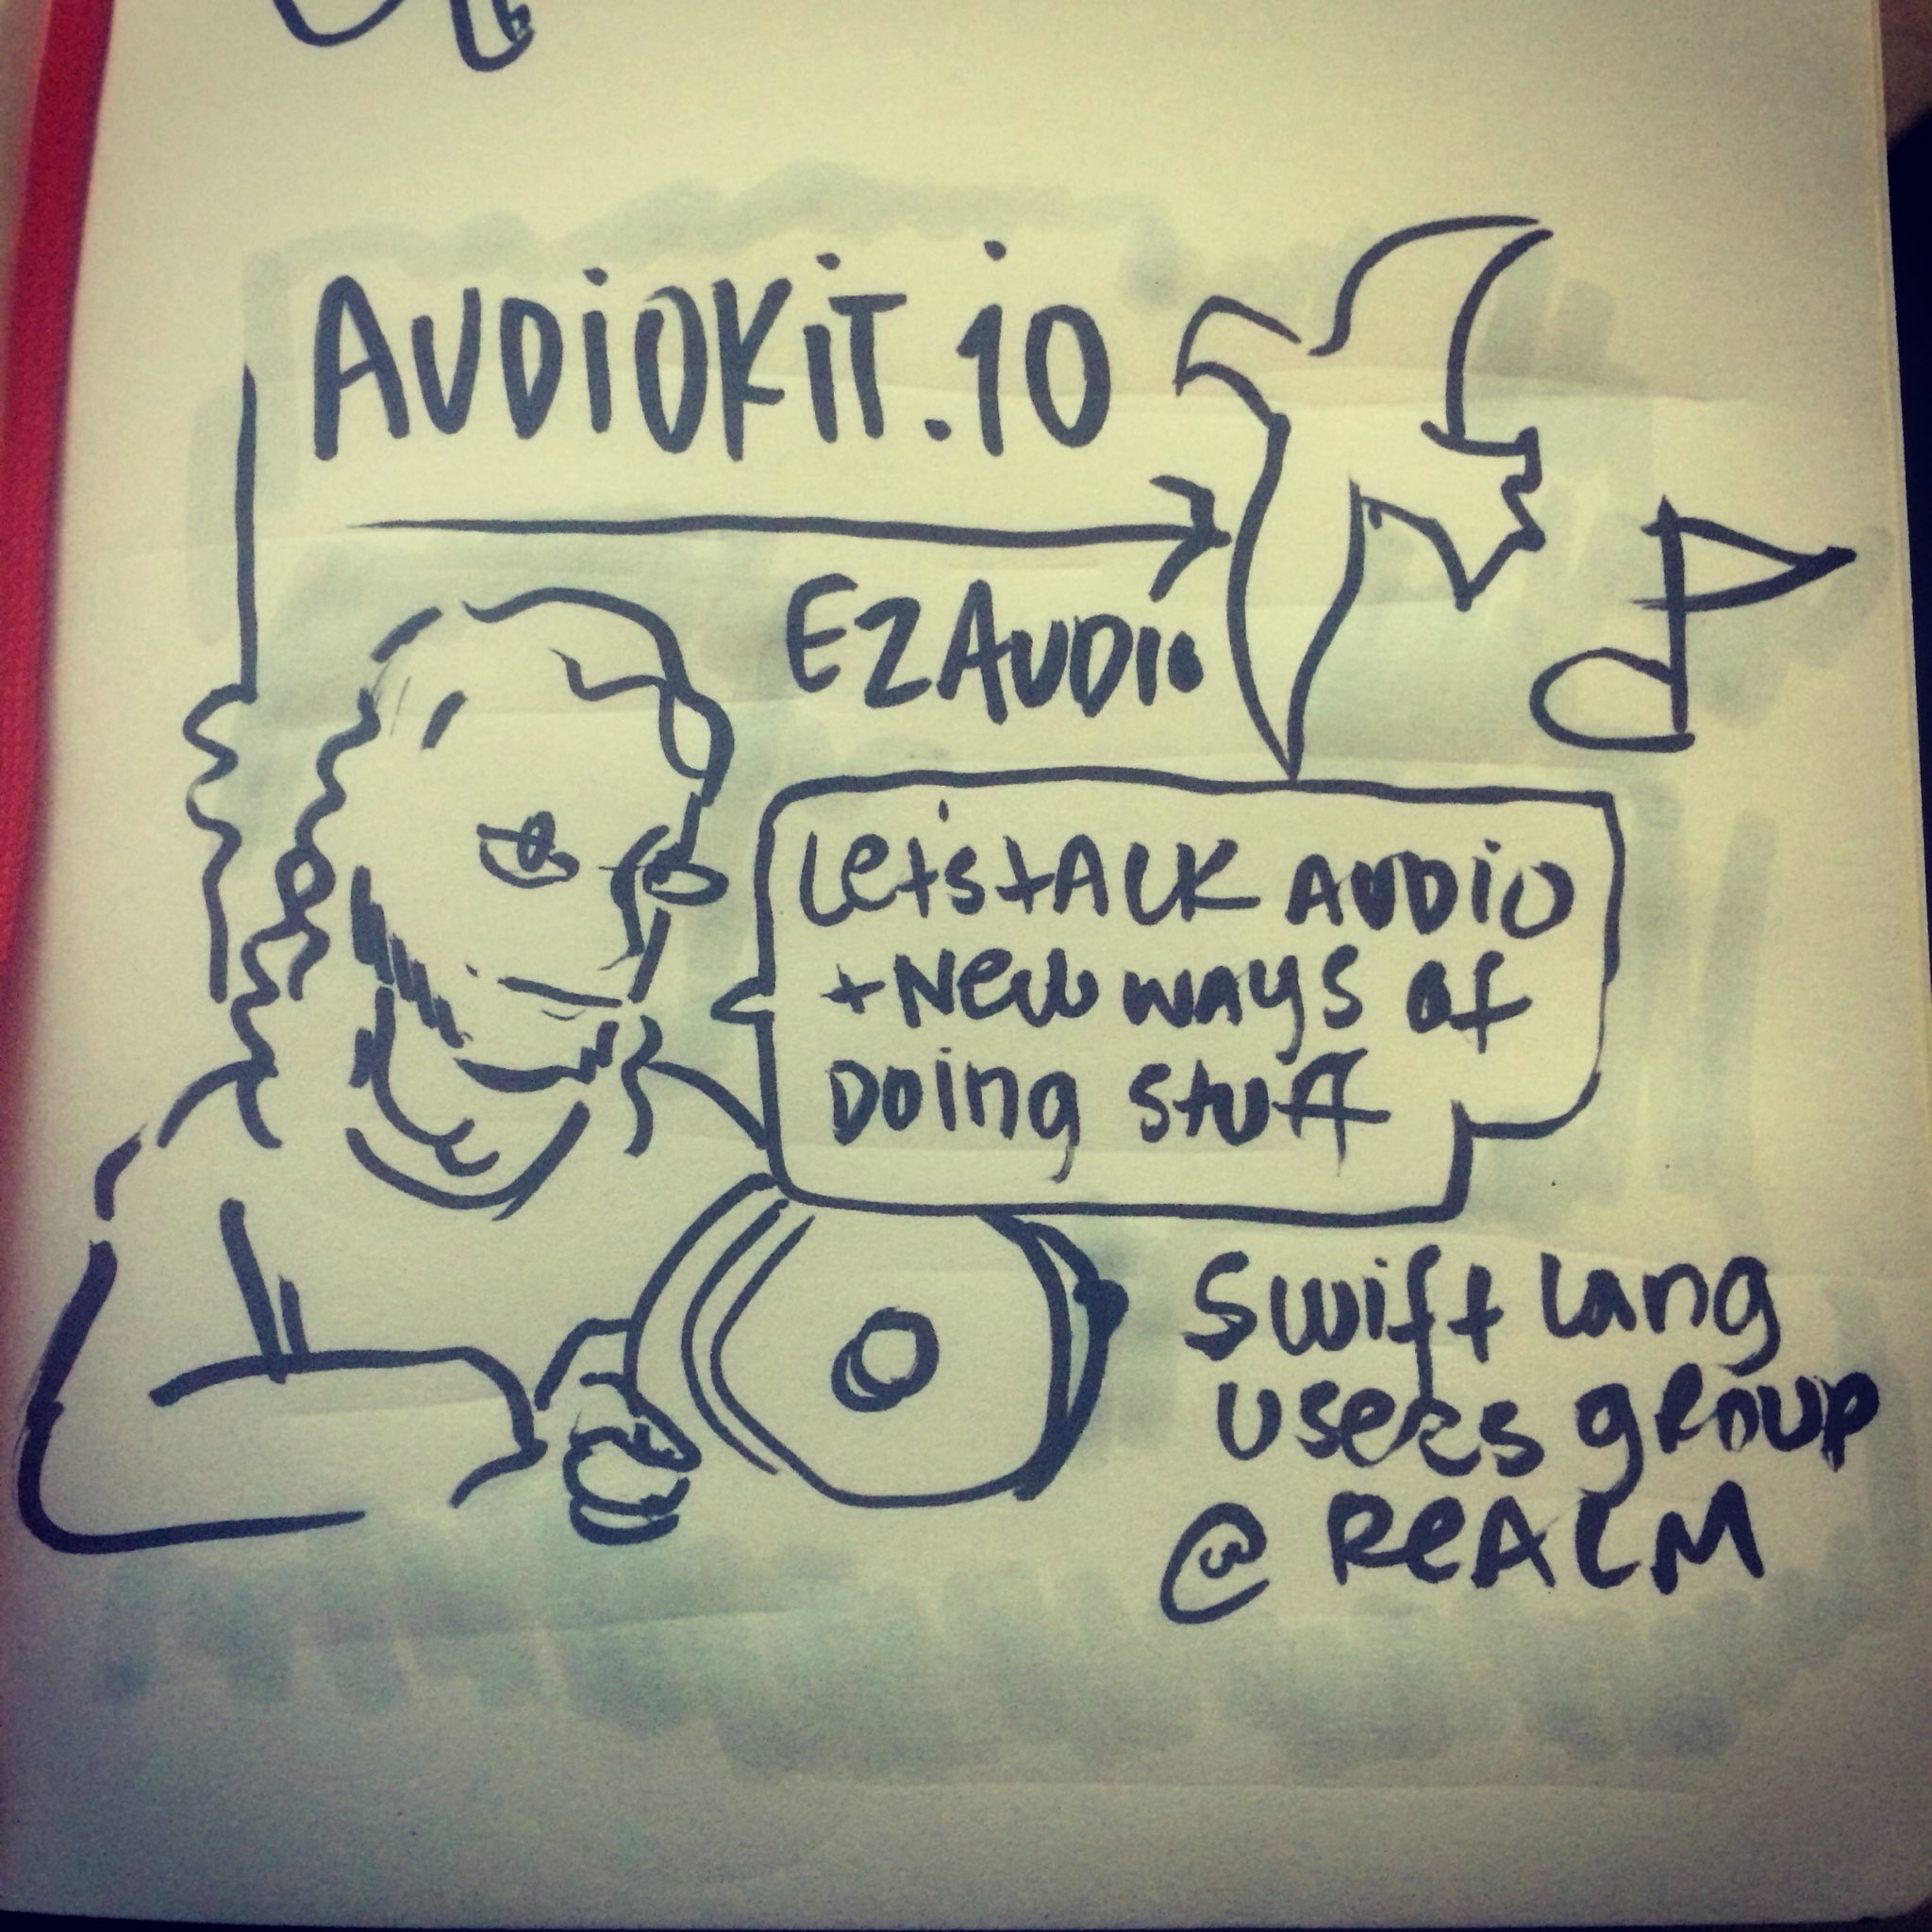 AUDiOKiT.io
EZAUDio
Let's tALK AUDio
+ New wAys of
Doing stuff
Swift lang
users group
@ ReALM